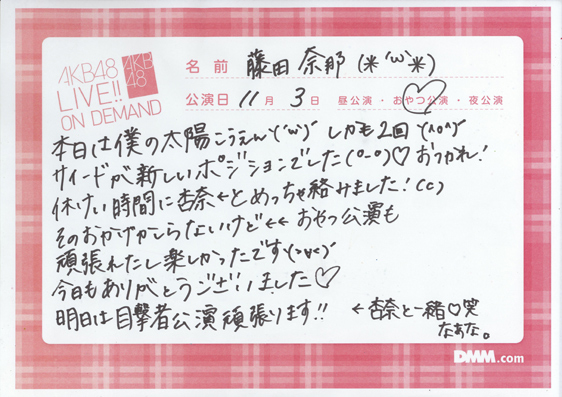 AKB48
LIVE!!
ON DEMAND
AKB
48
名前 藤田奈那(*'ω'*)
公演日 11月3日 昼公演・おやつ公演・夜公演
本日は僕の太陽こうえん\('ω')/ しかも2回\(^o^)/
サイードが新しいポジションでした(°-°)♡おつかれ!
休けい時間に杏奈←とめっちゃ絡みました!(c)
そのおかげかしらないけど←← おやつ公演も
頑張れたし楽しかったです\(>v<)/
今日もありがとうございました♡
明日は目撃者公演頑張ります!! ←杏奈と一緒♡笑
なぁな。
DMM.com